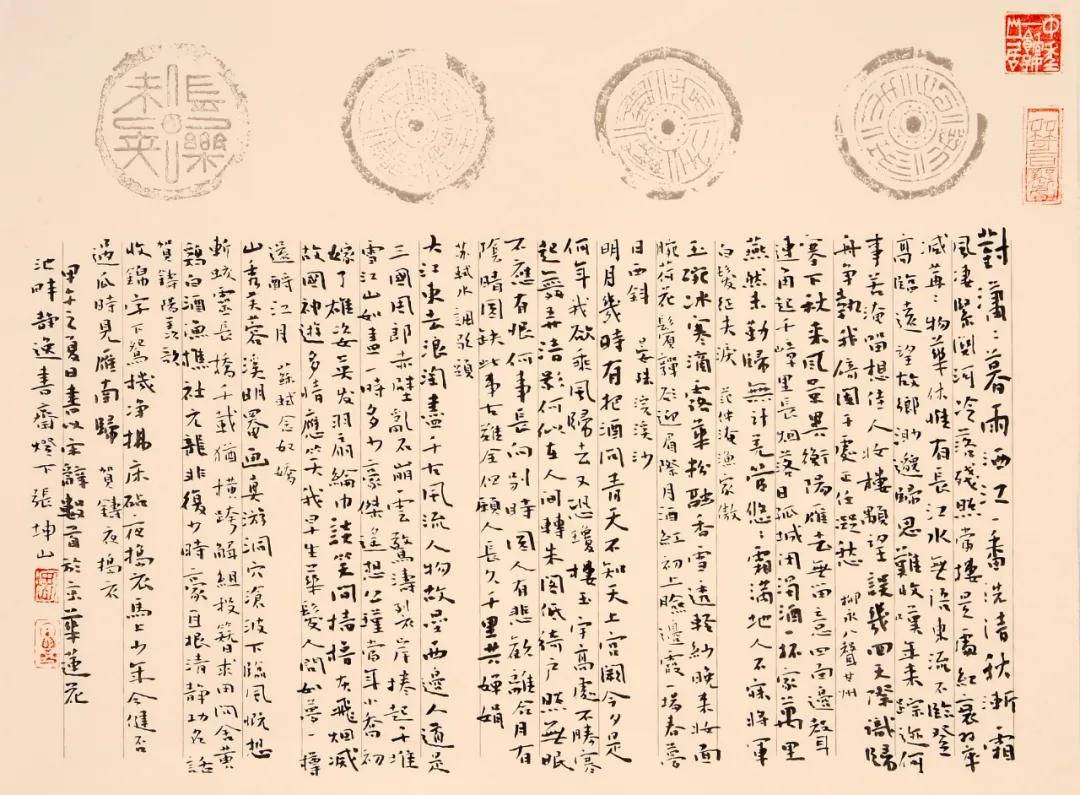 對瀟〻暮雨洒江一番洗清秋漸霜
風淒緊關河冷落殘照當樓是處紅衰翠
減苒〻物華休惟有長江水無語東流不臨登
高臨遠望故鄉渺邈歸思難收嘆年來蹤迹何
事苦淹留想佳人妝樓顒望誤幾回天際識歸
舟爭我倚闌干處正恁凝愁 柳永八聲甘州
塞下秋來風景異衡陽雁去無留意四面邊聲
連角起千嶂里長烟落日孤城閉濁酒一杯家萬里
燕然未勒歸無計羌管悠〻霜滿地人不寐將軍
白髮征夫淚 范仲淹漁家傲
玉碗冰寒滴露華粉融香雪透輕紗晚來妝面
勝荷花鬢嚲欲迎眉際月酒紅初上臉邊霞一場春夢
日西斜 晏殊浣溪沙
明月幾時有把酒問青天不知天上宮闕今夕是
何年我欲乘風歸去又恐瓊樓玉宇高處不勝寒
起舞弄清影何似在人間轉朱閣低綺戶照無眠
不應有恨何事長向別時圓人有悲歡離合月有
陰晴圓缺此事古難全但願人長久千里共嬋娟
蘇軾水調歌頭
大江東去浪淘盡千古風流人物故壘西邊人道是
三國周郎赤壁亂石崩雲驚濤裂岸捲起千堆
雪江山如畫一時多少豪傑遙想公瑾當年小喬初
嫁了雄姿英发羽扇綸巾談笑間檣櫓灰飛烟滅
故國神遊多情應笑我早生華髮人間如夢一樽
還酹江月 蘇軾念奴嬌
山秀芙蓉溪明罨画真游洞穴滄波下臨風慨想
斬蛟靈長橋千載猶橫跨解組投簪求田問舍黃
鷄白酒漁樵社元龍非復少時豪耳根清靜功名話
賀鑄陽羨歌
收錦字下鴛機淨拂床砧夜搗衣馬上少年今健否
過瓜時見雁南歸 賀鑄夜搗衣
甲午之夏日書以宋辭數首於京華蓮花
池畔靜逸書齋燈下張坤山
長樂未央